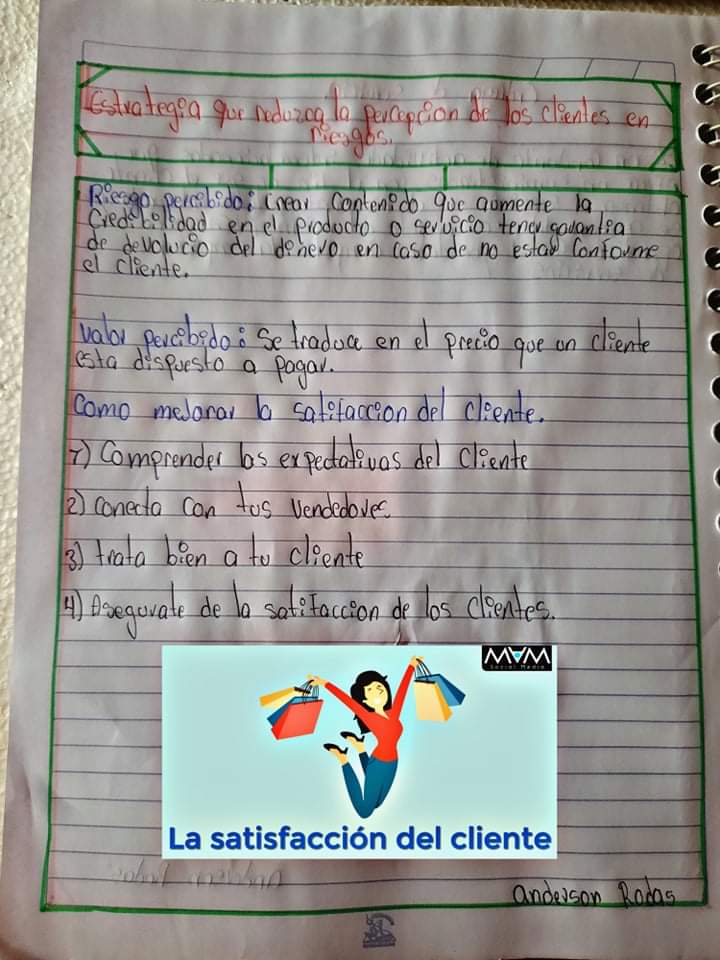 Estrategia que reduzca la percepcion de los clientes en
riesgos.
Riesgo percibido: Crear Contenido que aumente la
Credibilidad en el producto o servicio tener garantia
de devolucio del dinero en caso de no estar Conforme
el cliente.
Valor percibido: Se traduce en el precio que un cliente
esta dispuesto a pagar.
Como mejorar la satifaccion del cliente.
1) Comprender las expectativas del Cliente
2) conecta con tus vendedores
3) trata bien a tu cliente
4) Asegurate de la satifaccion de los clientes.
MAM
Social Media
La satisfacción del cliente
Anderson Rodas